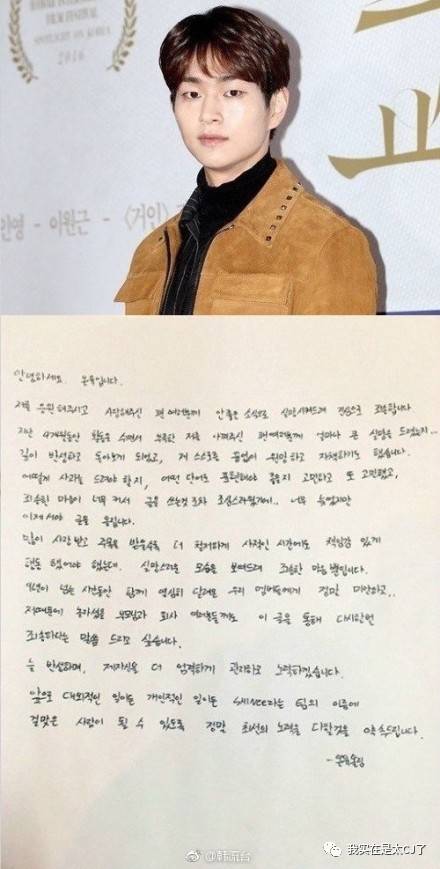 FILM FESTIVAL
SPOTLIGHT ON KOREA
2016
교
이원근 - 〈거인〉
안녕하세요. 온유입니다.
저를 응원해주시고 사랑해주신 팬 여러분께 안좋은 소식으로 실망시켜드려 진심으로 죄송합니다
지난 4개월동안 활동을 쉬면서 부족한 저를 아껴주신 팬여러분께 얼마나 큰 실망을 드렸는지...
깊이 반성하고 돌아보게 되었고, 저 스스로를 끝없이 원망하고 자책하기도 했습니다.
어떻게 사과를 드려야 할지, 어떤 단어로 표현해야 좋을지 고민하고 또 고민했고,
죄송한 마음이 너무 커서 글을 쓰는것 조차 조심스러웠기에.. 너무 늦었지만
이제서야 글을 올립니다.
많이 사랑받고 주목을 받을수록 더 철저하게 사적인 시간에도 책임감 있게
행동 했어야 했는데. 실망스러운 모습을 보여드려 죄송한 마음 뿐입니다.
9년이 넘는 시간동안 함께 열심히 달려온 우리 멤버들에게 정말 미안하고..
저때문에 놀라셨을 부모님과 회사 여러분들께도 이 글을 통해 다시한번
죄송하다는 말씀 드리고 싶습니다.
늘 반성하며, 제자신을 더 엄격하게 관리하고 노력하겠습니다.
앞으로 대외적인 일이든 개인적인 일이든 SHINee라는 팀의 이름에
걸맞은 사람이 될 수 있도록 정말 최선의 노력을 다할것을 약속드립니다.
@韩流台
我实在是太CJ了